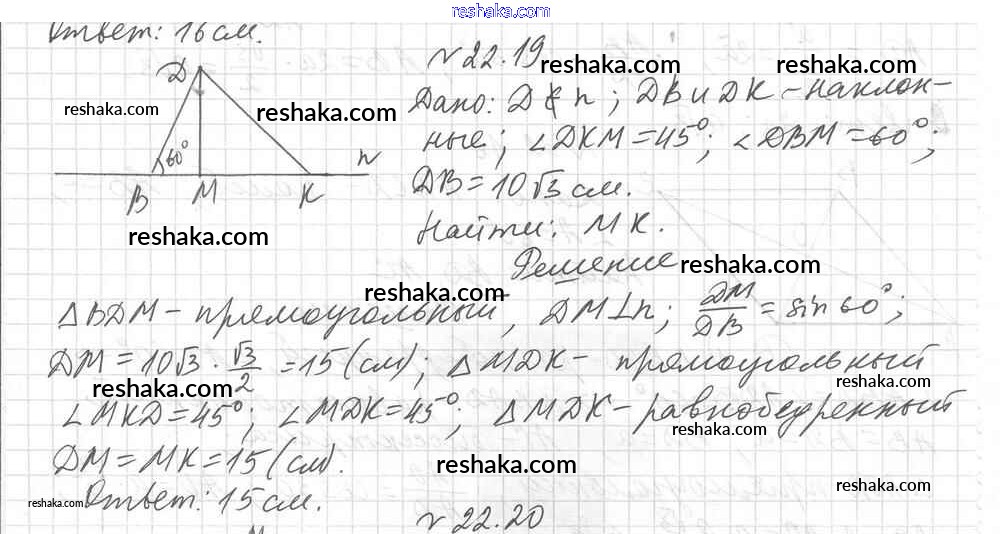 reshaka.com
Ответ: 16 см.
№ 22.19
D
60°
B M K n
Дано: D ∉ n; DB и DK – наклон-
ные; ∠DKM = 45°; ∠DBM = 60°;
DB = 10√3 см.
Найти: MK.
Решение
△BDM – прямоугольный, DM ⊥ n; DM/DB = sin 60°;
DM = 10√3 · √3/2 = 15 (см); △MDK – прямоугольный
∠MKD = 45°; ∠MDK = 45°; △MDK – равнобедренный
DM = MK = 15 (см).
Ответ: 15 см.
№ 22.20
reshaka.com
reshaka.com
reshaka.com
reshaka.com
reshaka.com
reshaka.com
reshaka.com
reshaka.com
reshaka.com
reshaka.com
reshaka.com
reshaka.com
reshaka.com